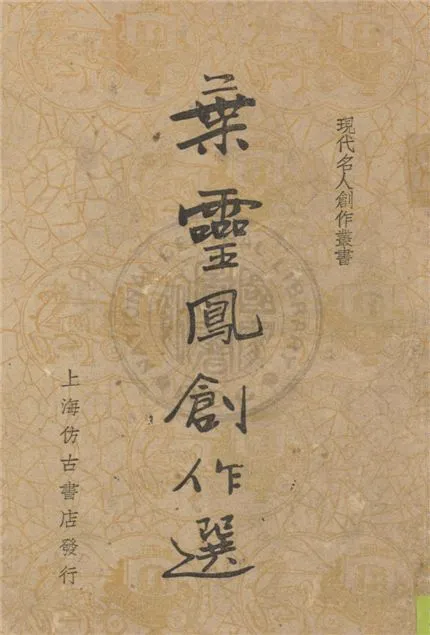 現代名人創作叢書
葉靈鳳創作選
上海仿古書店發行